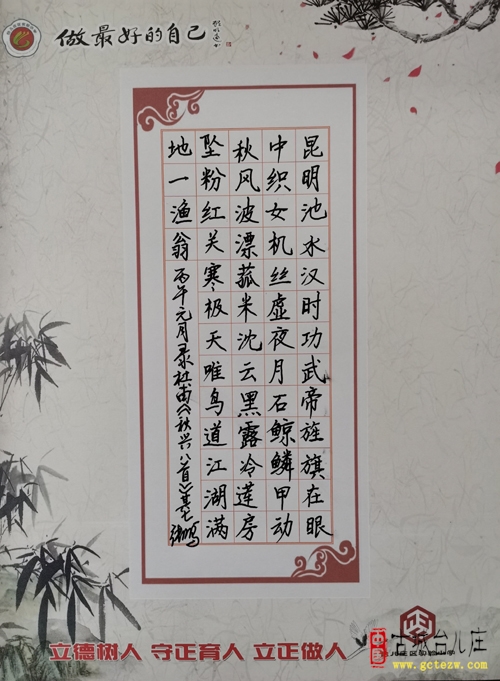 做最好的自己
昆明池水汉时功武帝旌旗在眼
中织女机丝虚夜月石鲸鳞甲动
秋风波漂菰米沈云黑露冷莲房
坠粉红关寒极天唯鸟道江湖满
地一渔翁丙午元月录杜甫《秋兴八首》其七
立德树人 守正育人 立正做人
古城台儿庄
www.gctezw.com